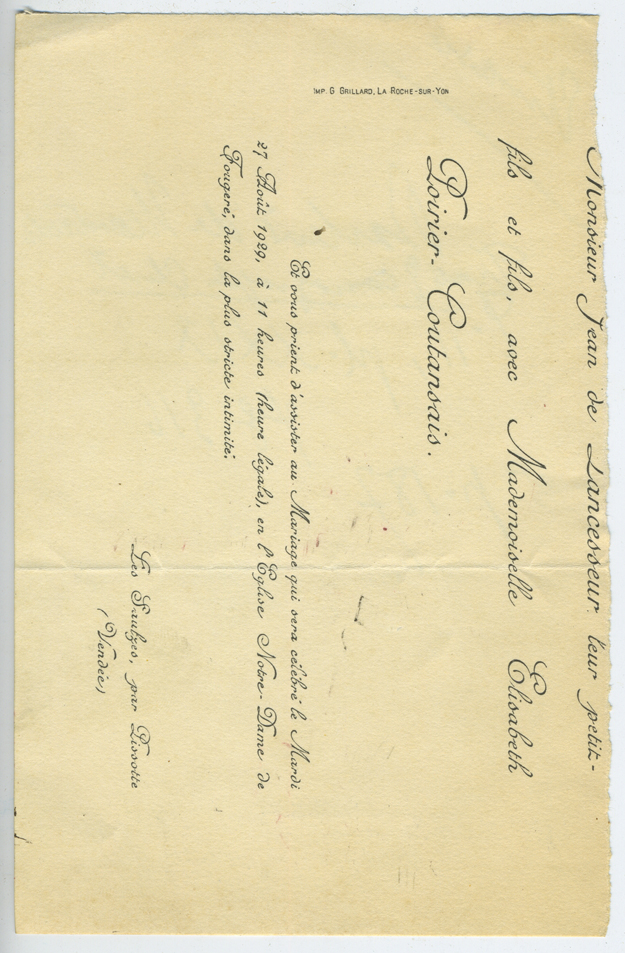 Monsieur Jean de Lancesseur leur petit-
fils et fils, avec Mademoiselle Elisabeth
Poirier-Coutansais.
Et vous prient d'assister au Mariage qui sera célébré le Mardi
27 Août 1929, à 11 heures (heure légale), en l'Eglise Notre-Dame de
Fougeré, dans la plus stricte intimité.
Les Saulzes, par Pissotte
(Vendée)
IMP. G GRILLARD, LA ROCHE-SUR-YON